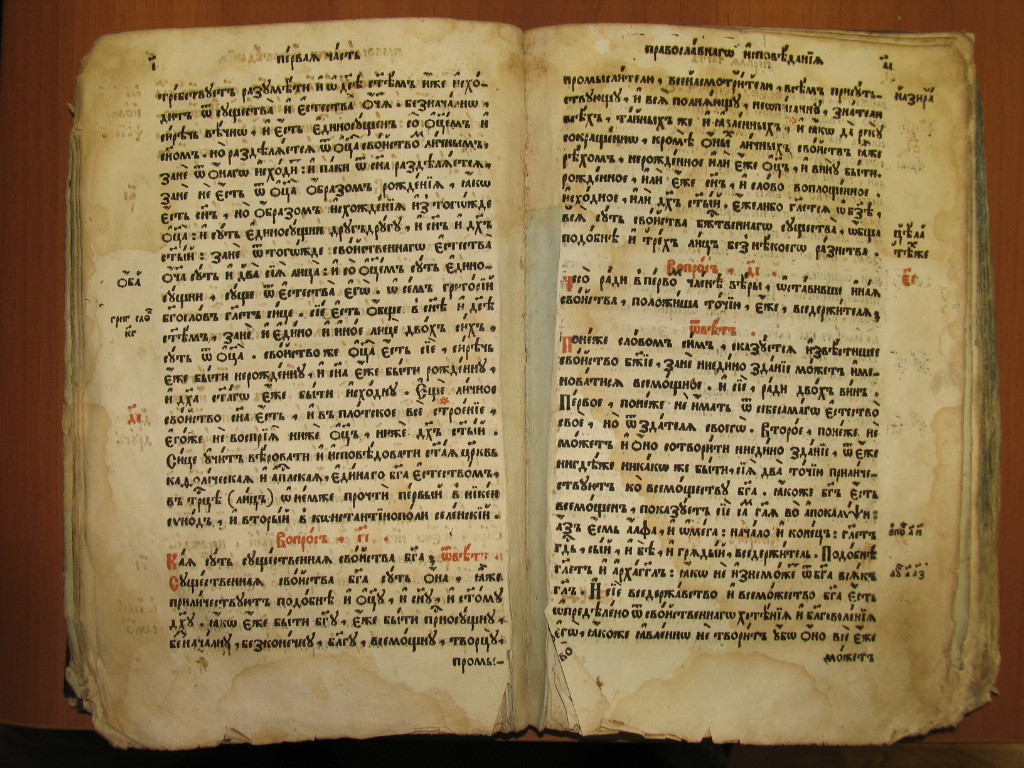 і҃
пе́рваѧ ча́сть
тре́бствꙋетъ разꙋмѣ́ти и҆ ѡ҆ дс҃ѣ ст҃ѣмъ и҆́же и҆схо́-
дитъ ѿ сꙋщества̀ и҆ є҆стества̀ ѻ҆́ч҃а . безнача́лнѡ ,
си́рѣчь вѣ́чнѡ , и҆ є҆́сть є҆диносꙋ́щенъ со ѻ҆ц҃е́мъ и҆
сн҃омъ . но раздѣлѧ́етсѧ ѿ ѻ҆ц҃а̀ сво́йство ли́чнымъ ,
занѐ ѿ ѻ҆́нагѡ и҆схо́ди : и҆ па́ки ѿ сн҃а раздѣлѧ́етсѧ ,
занѐ не є҆́сть ѿ ѻ҆ц҃а̀ ѻ҆́бразомъ рожде́нїѧ , ꙗ҆́кѡ
є҆́сть сн҃ъ , но ѻ҆́бразомъ и҆схожде́нїѧ и҆з̾ тогѡ́жде
ѻ҆ц҃а̀ : и҆ сꙋ́ть є҆диносꙋ́щни дрꙋ́гъ дрꙋ́гꙋ , и҆ сн҃ъ и҆ дх҃ъ
ст҃ы́й : занѐ ѿ тогѡ́жде сво́йственнагѡ є҆стества̀
ѻ҆́ч҃а сꙋ́ть и҆ два̀ сїѧ̑ лица̀ : и҆ со ѻ҆ц҃е́мъ сꙋ́ть є҆дино-
сꙋ́щни , сꙋ́ще ѿ є҆стества̀ є҆гѡ̀ . ѡ҆ се́мъ григо́рїй
бг҃осло́въ гл҃етъ си́це . сїѐ є҆́сть ѻ҆́бще в сн҃ѣ и҆ дс҃ѣ
ст҃ѣмъ , занѐ и҆ є҆ди́но и҆ и҆но́е лицѐ двѻ́хъ си́хъ ,
сꙋ́ть ѿ ѻ҆ц҃а̀ . сво́йство же ѻ҆ц҃а̀ є҆́сть сїѐ , си́рѣчь
є҆́же бы́ти нерожде́ннꙋ , и҆ сн҃а є҆́же бы́ти рожде́ннꙋ ,
и҆ дх҃а ст҃а́гѡ є҆́же бы́ти и҆схо́днꙋ . Є҆щѐ ли́чное
сво́йство сн҃а є҆́сть , и҆ в плотско́е всѐ строе́нїе ,
є҆гѡ́же не воспрїѧ̀ нижѐ ѻ҆ц҃ъ , нижѐ дх҃ъ ст҃ы́й .
Си́це ᲂу҆чи́тъ вѣ́ровати и҆ и҆сповѣ́довати ст҃а́ѧ цр҃ковь
каѳоли́ческаѧ и҆ а҆пⷭ҇лскаѧ , є҆ди́наго бг҃а є҆стество́мъ ,
в трⷪ҇цѣ ( ли́цъ ) ѡ҆ не́мже прочтѝ пе́рвый в нїке́и
сѵно́дъ , и҆ вторы́й в кѡнстантїнопо́ли селе́нскїй .
Вопро́съ , гі҃ .
Ка́ѧ сꙋ́ть сꙋще́ственнаѧ сво́йства бг҃а ; ѿвѣ́тъ .
Сꙋще́ственнаѧ сво́йства бг҃а сꙋ́ть ѻ҆на̀ , ꙗ҆́же
прили́чествꙋютъ подо́бнѣ и҆ ѻ҆ц҃ꙋ̀ , и҆ сн҃ꙋ , и҆ ст҃о́мꙋ
дх҃ꙋ . ꙗ҆́кѡ є҆́же бы́ти бг҃ꙋ , є҆́же бы́ти присносꙋ́щнꙋ ,
безнача́лнꙋ , безконе́чнꙋ , бл҃гꙋ , всемо́щнꙋ , творцꙋ̀ ,
промы-
ѻ҆́ба
григ сло
кѕ
правосла́внагѡ и҆сповѣ́данїѧ
а҃і
промысли́телю , всенасмотри́телю , всѣ̑мъ прису́ть-
ствꙋющꙋ , и҆ всѧ̑ полнѧ́щꙋ , неѡпи́саннꙋ , зна́телю
всѣ́хъ , та́йныхъ же и҆ ꙗ҆вле́нныхъ , и҆ ꙗ҆́кѡ да рекꙋ̀
сокраще́ннѡ , кро́мѣ ѻ҆́ныѧ ли́чныхъ сво́йствъ ꙗ҆́же
рѣ́хомъ , нерожде́нное и҆лѝ є҆́же ѻ҆ц҃ъ , и҆ винꙋ̀ бы́ти .
рожде́нное , и҆лѝ є҆́же сн҃ъ , и҆ сло́во воплоще́нное .
и҆схо́дное , и҆лѝ дх҃ъ ст҃ы́й . є҆́желибо гл҃етсѧ ѡ҆ бз҃ѣ ,
всѧ̑ сꙋ́ть сво́йства бж҃твеннагѡ сꙋщества̀ , ѻ҆́бща
подо́бнѣ и҆ тре́хъ ли́цъ без нѣ́коегѡ ра́знства .
Вопро́съ , ді҃ .
Чесо̀ ра́ди в пе́рво чле́нѣ вѣ́ры , ѡ҆ста́вивше и҆на́ѧ
сво́йства , положи́ша то́чїю , є҆́же , вседержи́телѧ ;
ѿвѣ́тъ .
Поне́же сло́вомъ си́мъ , ска́зꙋетсѧ и҆звѣ́стнѣе
сво́йство бж҃їе , занѐ ниеди́но зда́нїе мо́жетъ и҆ме-
нова́тисѧ всемо́щное . и҆ сїѐ , ра́ди двѻ́хъ ви́нъ .
Пе́рвое , поне́же не и҆́мать ѿ себє̀ самагѡ є҆стество̀
своѐ , но ѿ зда́телѧ своегѡ̀ . Второ́е , поне́же не
мо́жетъ и҆ ѻ҆́но сотвори́ти ниеди́но зда́нїе , ѿ є҆́же
нигдѣ́же ника́кѡ же бы́ти , сїѧ̑ два̀ то́чїи прили́че-
ствꙋютъ ко всемо́ществꙋ бг҃а . ꙗ҆́коже бг҃ъ є҆́сть
всемо́щенъ , пока́зꙋетъ сїѐ са́м гл҃ѧ во а҆пока́лѵѱи :
а҆́зъ є҆́смь а҆́лфа , и҆ ѡ҆ме́га : нача́ло и҆ коне́цъ : гл҃етъ
гд҇ь , сы́й , и҆ бѣ̀ , и҆ грѧды́й , вседержи́тель . Подо́бнѣ
гл҃етъ и҆ а҆рха́гг҃лъ : ꙗ҆́кѡ не и҆знемо́же ѿ бг҃а всѧ́къ
гл҃ъ . И҆ сїѐ вседержа́вство и҆ всемо́жество бг҃а є҆́сть
ѡ҆предѣле́но ѿ сво́йственнагѡ хотѣ́нїѧ и҆ бл҃говоле́нїѧ
є҆гѡ̀ , ꙗ҆́коже ꙗ҆вле́ннѡ не твори́тъ ᲂу҆́бѡ ѻ҆́но всѐ є҆́же
мо́жетъ